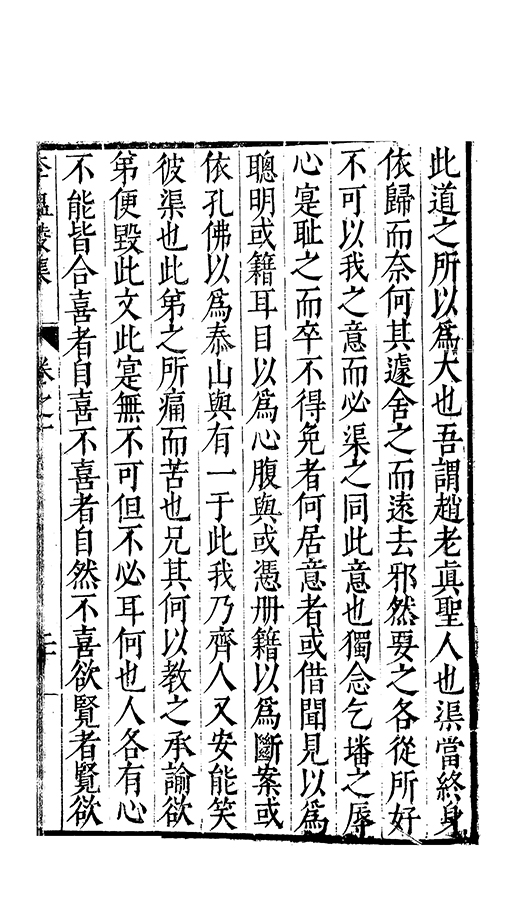 此道之所以爲大也吾謂趙老眞聖人也渠當終身
依歸而奈何其遽舍之而遠去邪然要之各從所好
不可以我之意而必渠之同此意也獨念乞墦之辱
心寔耻之而卒不得免者何居意者或借聞見以爲
聰明或籍耳目以爲心腹與或憑册籍以爲斷案或
依孔佛以爲泰山與有一于此我乃齊人又安能笑
彼渠也此第之所痛而苦也兄其何以教之承諭欲
第便毀此文此寔無不可但不必耳何也人各有心
不能皆合喜者自喜不喜者自然不喜欲覽者覽欲
李溫陵集 卷之一